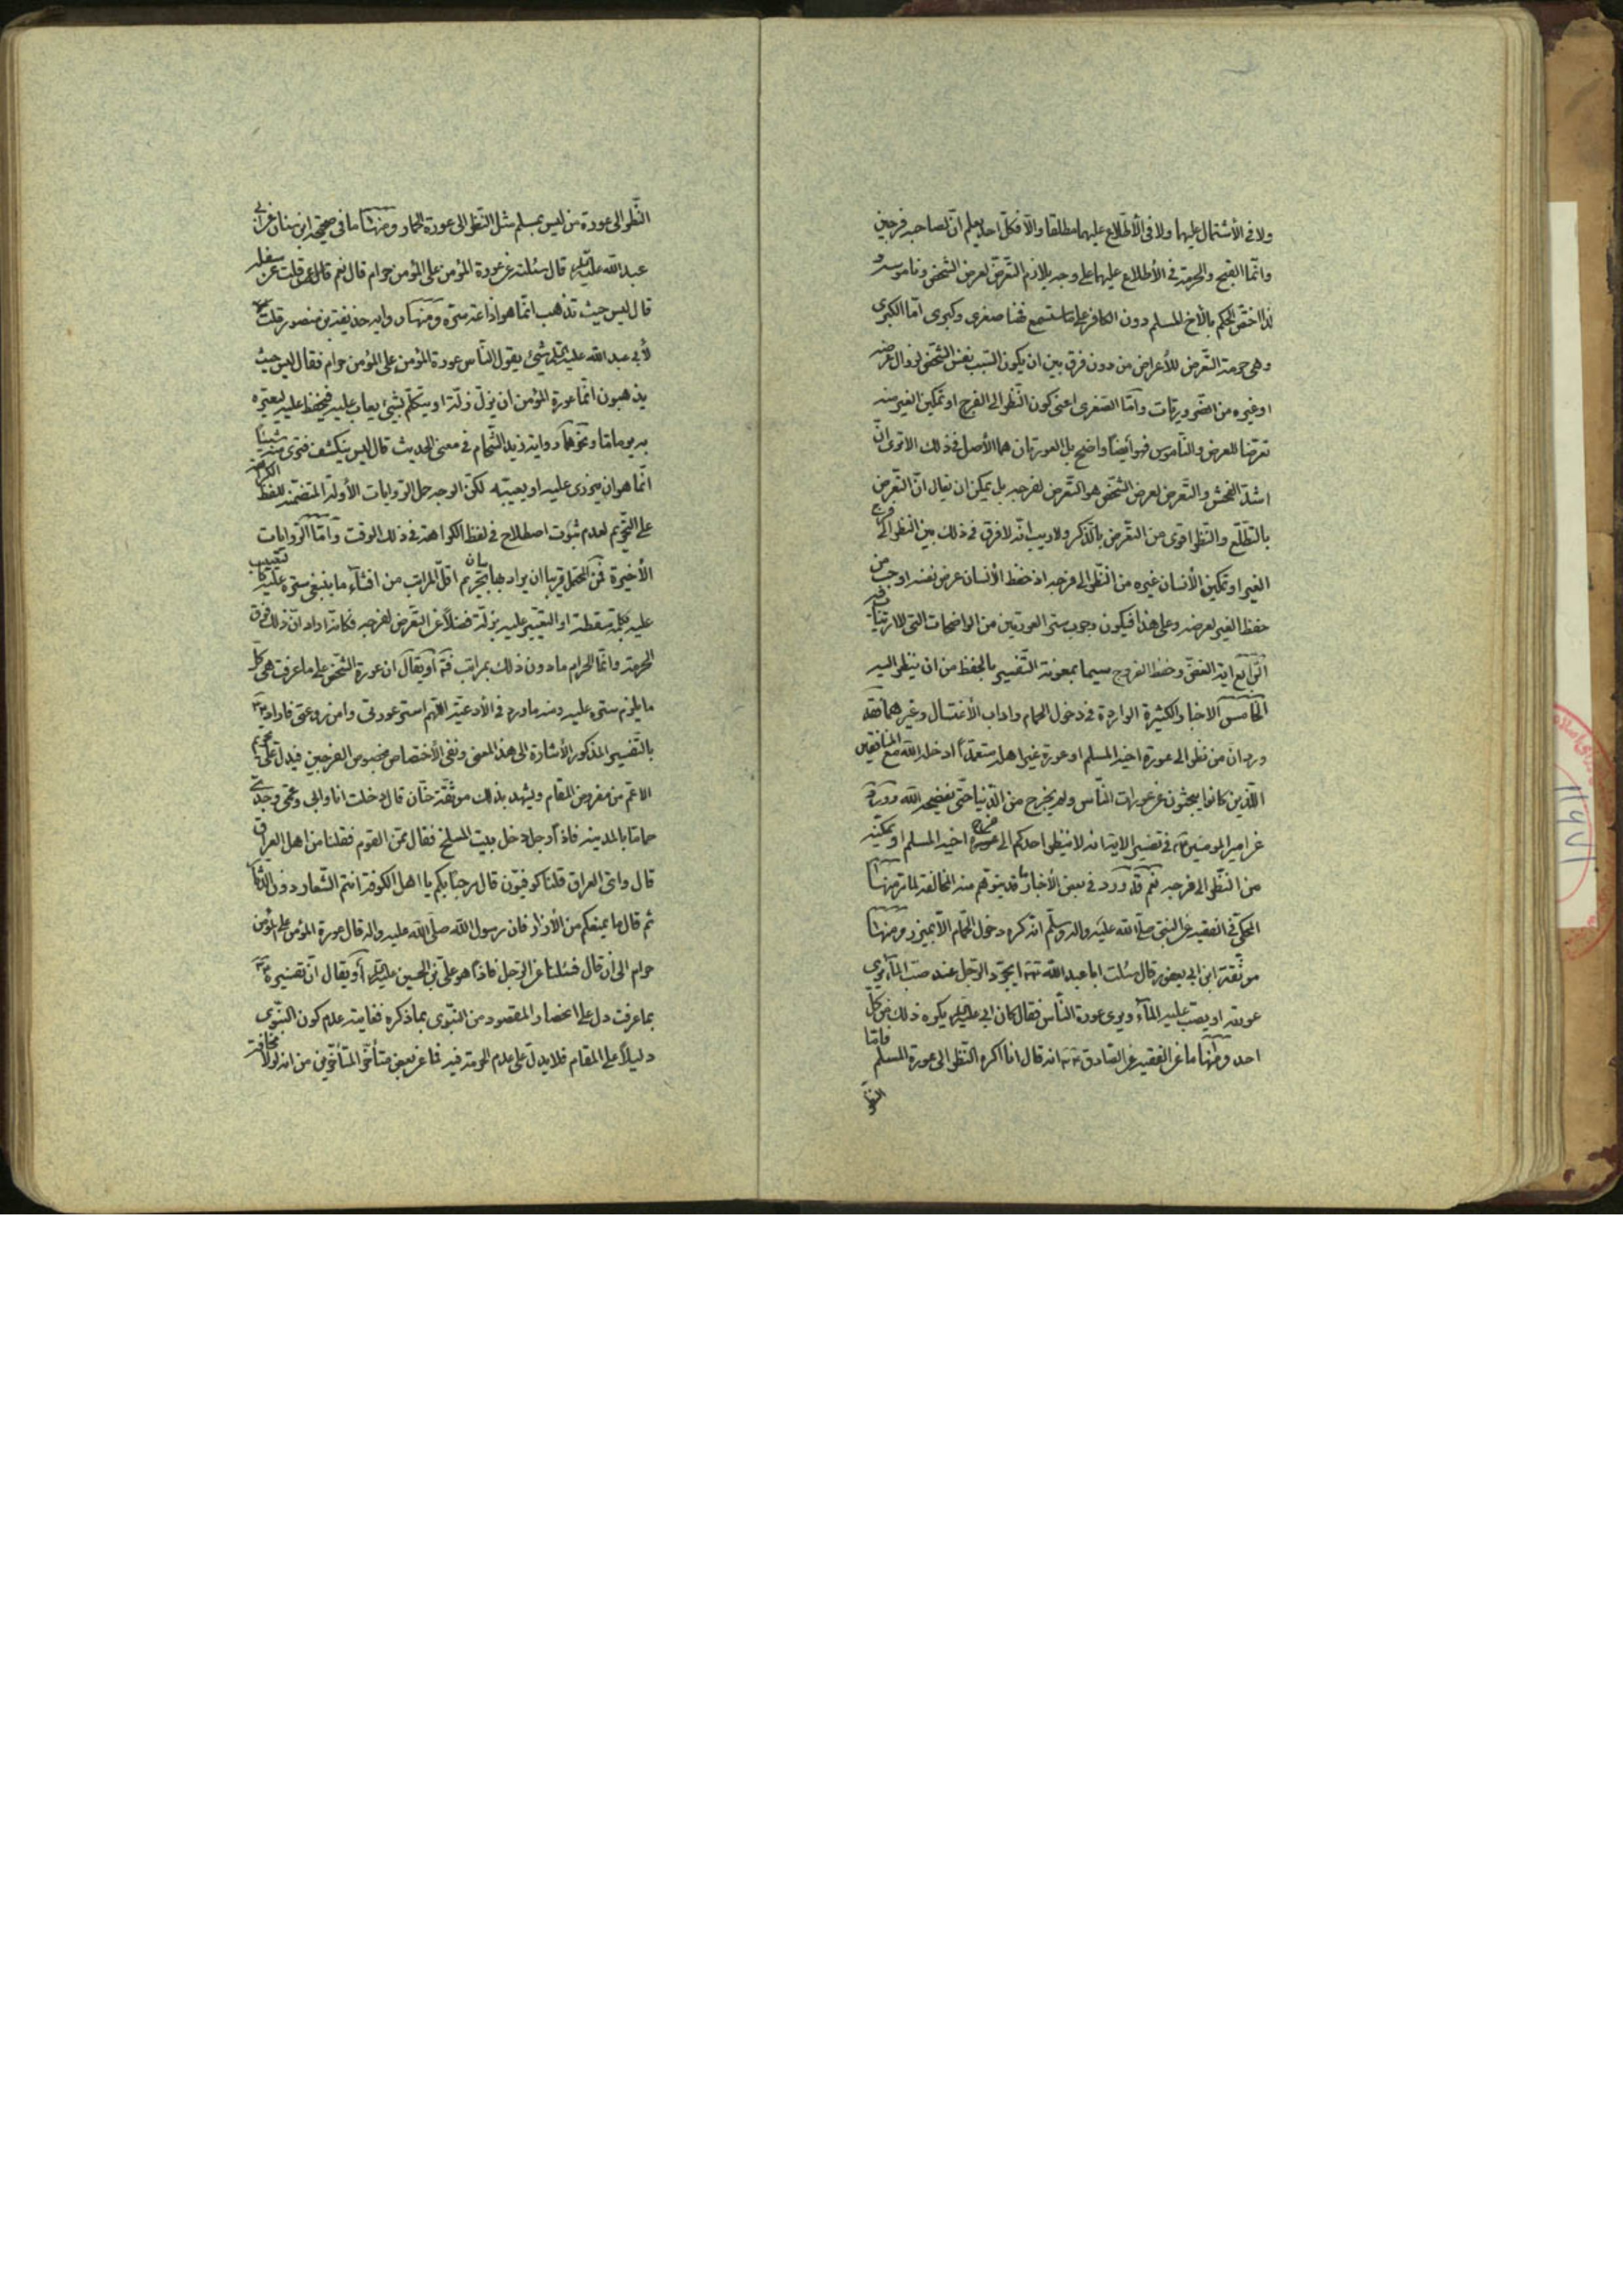 ولا فى الأشتمال عليها ولا فى الأطلاع عليهما مطلقا والا فكل احد يعلم ان لصاحبه فرجين
وانما القبح والحرمة فى الأطلاع عليها على وجه يلازم التعرض لعرض الشخص وناموسه و
لذا اختص الحكم بالأخ المسلم دون الكافر على ما ستسمع فهنا صغرى وكبرى اما الكبرى
وهى حرمة التعرض للأعراض من دون فرق بين ان يكون السبب نفس الشخص لزوال عرضه
او غيره من الضروريات واما الصغرى اعنى كون النظر الى الفرج او تمكين الغير منه
تعرضا للعرض والناموس فهو ايضا واضح بل العورتان هما الأصل فى ذلك الا ترى ان
اشد الفحش والتعرض لعرض الشخص هو التعرض لفرجه بل يمكن ان يقال ان التعرض
بالتطلع والنظر اقوى من التعرض بالذكر ولا ريب انه لا فرق فى ذلك بين النظر الى فرج
الغير او تمكين الأنسان غيره من النظر الى فرجه اذ حفظ الأنسان عرض نفسه اوجب من
حفظ الغير لعرضه وعلى هذا فيكون وجوب ستر العورتين من الواضحات التى لا ارتياب فيه
الرابع اية الغض وحفظ الفروج سيما بمعونة التفسير بالحفظ من ان ينظر اليه
الخامس الاخبار الكثيرة الواردة فى دخول الحمام واداب الأغتسال وغيرهما فقد
ورد ان من نظر الى عورة اخيه المسلم او عورة غير اهله متعمدا ادخله الله مع المنافقين
الذين كانوا يبحثون عن عورات الناس ولم يخرج من الدنيا حتى يفضحه الله وورد
عن امير المومنين ع فى تفسير الاية انه لا ينظر احدكم الى فرج اخيه المسلم او يمكنه
من النظر الى فرجه نعم قد ورد فى بعض الأخبار ما قد يتوهم منه المخالفة لما مر منها
المحكى فى الفقيه عن النبى صلى الله عليه واله وسلم انه كره دخول الحمام الا بميزر ومنها
موثقة ابن ابى يعفور قال سئلت ابا عبد الله ع ايتجرد الرجل عند صب الماء يرى
عورته او يصب عليه الماء ويرى عورة الناس فقال كان ابى عليه السلم يكره ذلك من كل
احد ومنها ما عن الفقيه عن الصادق ع انه قال انا اكره النظر الى عورة المسلم فاما
النظر
النظر الى عورة من ليس بمسلم مثل النظر الى عورة الحمار ومنها ما فى صحيحة ابن سنان عن ابى
عبد الله عليه السلم قال سئلته عن عورة المؤمن على المؤمن حرام قال نعم قلت سفليه
قال ليس حيث تذهب انما هو اذاعة سره ومنها رواية حذيفة بن منصور قلت
لأبى عبد الله عليه السلم شئ يقول الناس عورة المؤمن على المؤمن حرام فقال ليس حيث
يذهبون انما عورة المؤمن ان يزل زلة او يتكلم بشئ يعاب عليه فيحفظ عليه ليعيره
به يوما ما ونحوها رواية زيد الشحام فى معنى الحديث قال ليس ينكشف فترى منه شيئا
انما هو ان يزرى عليه او يعيبه لكن الوجه حمل الروايات الأولة المتضمنة للفظ الكراهة
على التحريم لعدم ثبوت اصطلاح فى لفظ الكراهة فى ذلك الوقت واما الروايات
الأخيرة فمن المحتمل قريبا ان يراد بها بيان تحريم اقل المراتب من افشاء ما ينبغى ستره عليه
عليه بكلمة سقطة او التعيير عليه بزلة فضلا عن التعرض لفرجه فكانه اراد ان ذلك فوق
الحرمة وانما الحرام ما دون ذلك بمراتب فت او يقال ان عورة الشخص على ما عرفت هى كل
ما يلزم ستره عليه ومنه ما ورد فى الأدعية اللهم استر عورتى وامن روعتى فاراد ع
بالتفسير المذكور الأشارة الى هذا المعنى ونفى الأختصاص بخصوص الفرجين فيدل على تحريم
الاعم من مفروض المقام ويشهد بذلك موثقة حنان قال دخلت انا وابى وعمى وجدى
حماما بالمدينة فاذا رجل دخل بيت المسلخ فقال ممن القوم فقلنا من اهل العراق
قال واى العراق قلنا كوفيون قال مرحبا بكم يا اهل الكوفة انتم الشعار دون الدثار
ثم قال ما يمنعكم من الأزار فان رسول الله صلى الله عليه واله قال عورة المؤمن على المؤمن
حرام الى ان قال فسئلنا عن الرجل فاذا هو على بن الحسين عليه السلم او يقال ان تفسيره ع
بما عرفت دل على انحصار المقصود من النبوى بما ذكره فغايته عدم كون النبوى
دليلا على المقام فلا يدل على عدم الحرمة فيه فما عن بعض متأخر المتأخرين من انه لولا مخافة